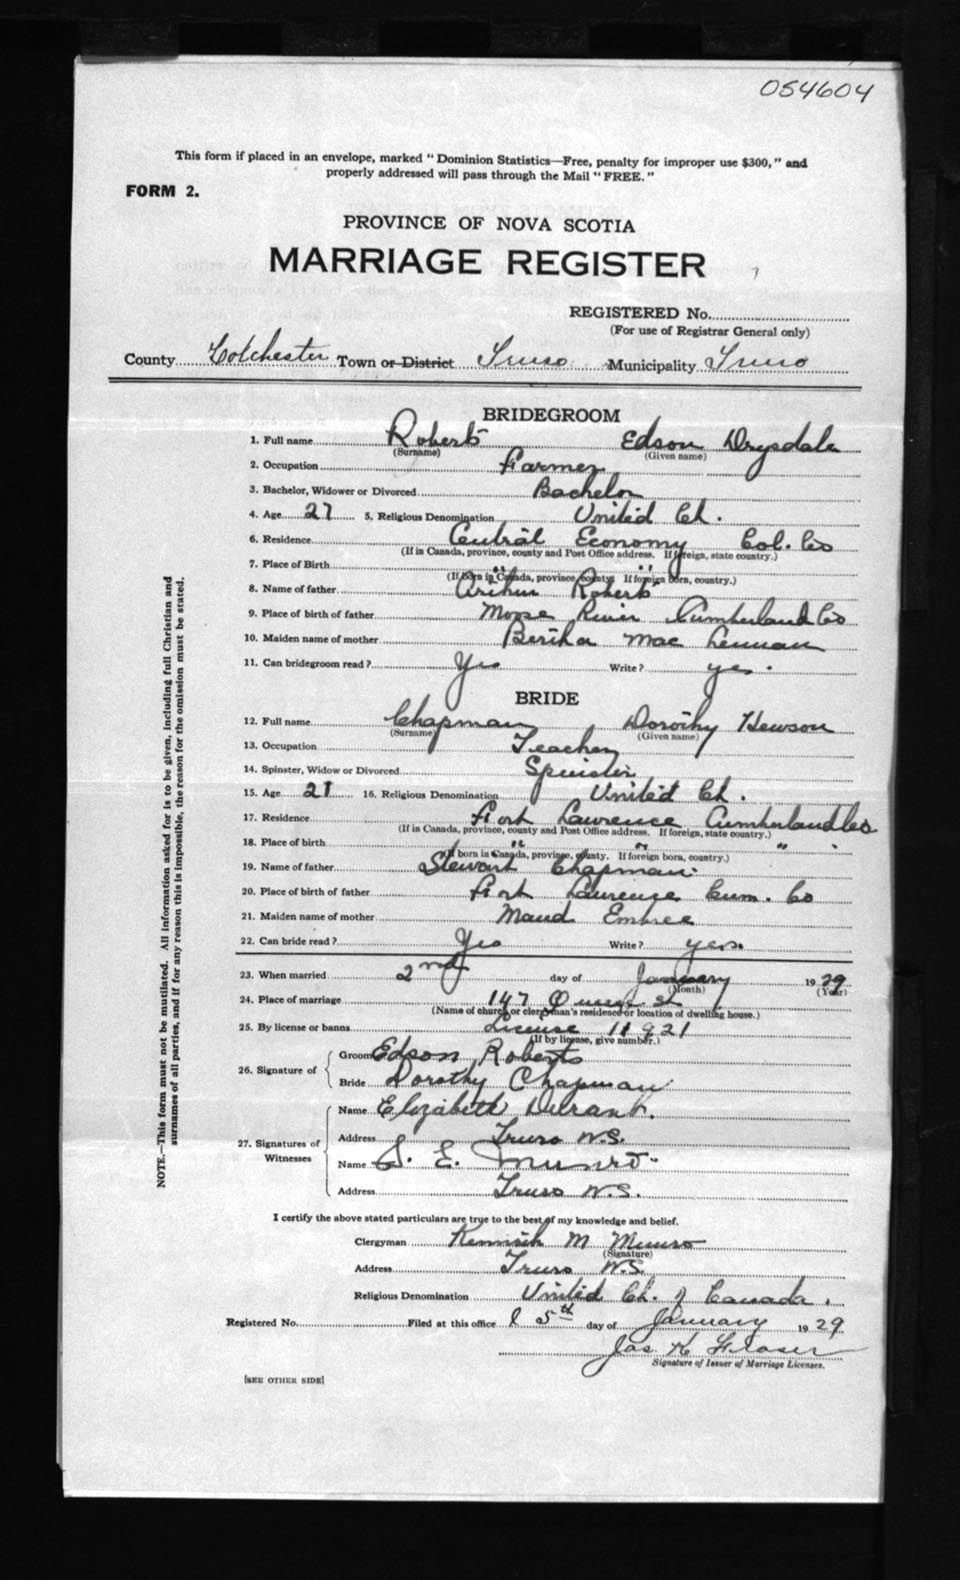 054604
This form if placed in an envelope, marked "Dominion Statistics—Free, penalty for improper use $300," and
properly addressed will pass through the Mail "FREE."
FORM 2.
PROVINCE OF NOVA SCOTIA
MARRIAGE REGISTER
REGISTERED No.
(For use of Registrar General only)
County Colchester Town or District Truro Municipality Truro
BRIDEGROOM
1. Full name Roberts Edson Drysdale
(Surname) (Given name)
2. Occupation Farmer
3. Bachelor, Widower or Divorced Bachelor
4. Age 27 5. Religious Denomination United Ch.
6. Residence Central Economy Col. Co
(If in Canada, province, county and Post Office address. If foreign, state country.)
7. Place of Birth " "
(If born in Canada, province, county. If foreign born, country.)
8. Name of father Arthur Roberts
9. Place of birth of father Moose River Cumberland Co
10. Maiden name of mother Bertha Mac Lennan
11. Can bridegroom read? Yes Write? yes.
BRIDE
12. Full name Chapman Dorothy Hewson
(Surname) (Given name)
13. Occupation Teacher
14. Spinster, Widow or Divorced Spinster
15. Age 21 16. Religious Denomination United Ch.
17. Residence Fort Lawrence Cumberland Co
(If in Canada, province, county and Post Office address. If foreign, state country.)
18. Place of birth " " "
(If born in Canada, province, county. If foreign born, country.)
19. Name of father Stewart Chapman
20. Place of birth of father Fort Lawrence Cum. Co
21. Maiden name of mother Maud Embree
22. Can bride read? Yes Write? yes.
23. When married 2nd day of January 1929
(Month) (Year)
24. Place of marriage 147 Queen St
(Name of church or clergyman's residence or location of dwelling house.)
25. By license or banns License 11921
(If by license, give number.)
26. Signature of Groom Edson Roberts
Bride Dorothy Chapman
27. Signatures of Witnesses
Name Elizabeth
Address Truro N.S.
Name S. E. Munro
Address Truro N.S.
I certify the above stated particulars are true to the best of my knowledge and belief.
Clergyman Kenneth M Munro
(Signature)
Address Truro N.S.
Religious Denomination United Ch. of Canada.
Registered No. Filed at this office 5th day of January 1929
Jas K Fraser
Signature of Issuer of Marriage Licenses.
[SEE OTHER SIDE]
NOTE.—This form must not be mutilated. All information asked for is to be given, including full Christian and
surnames of all parties, and if for any reason this is impossible, the reason for the omission must be stated.